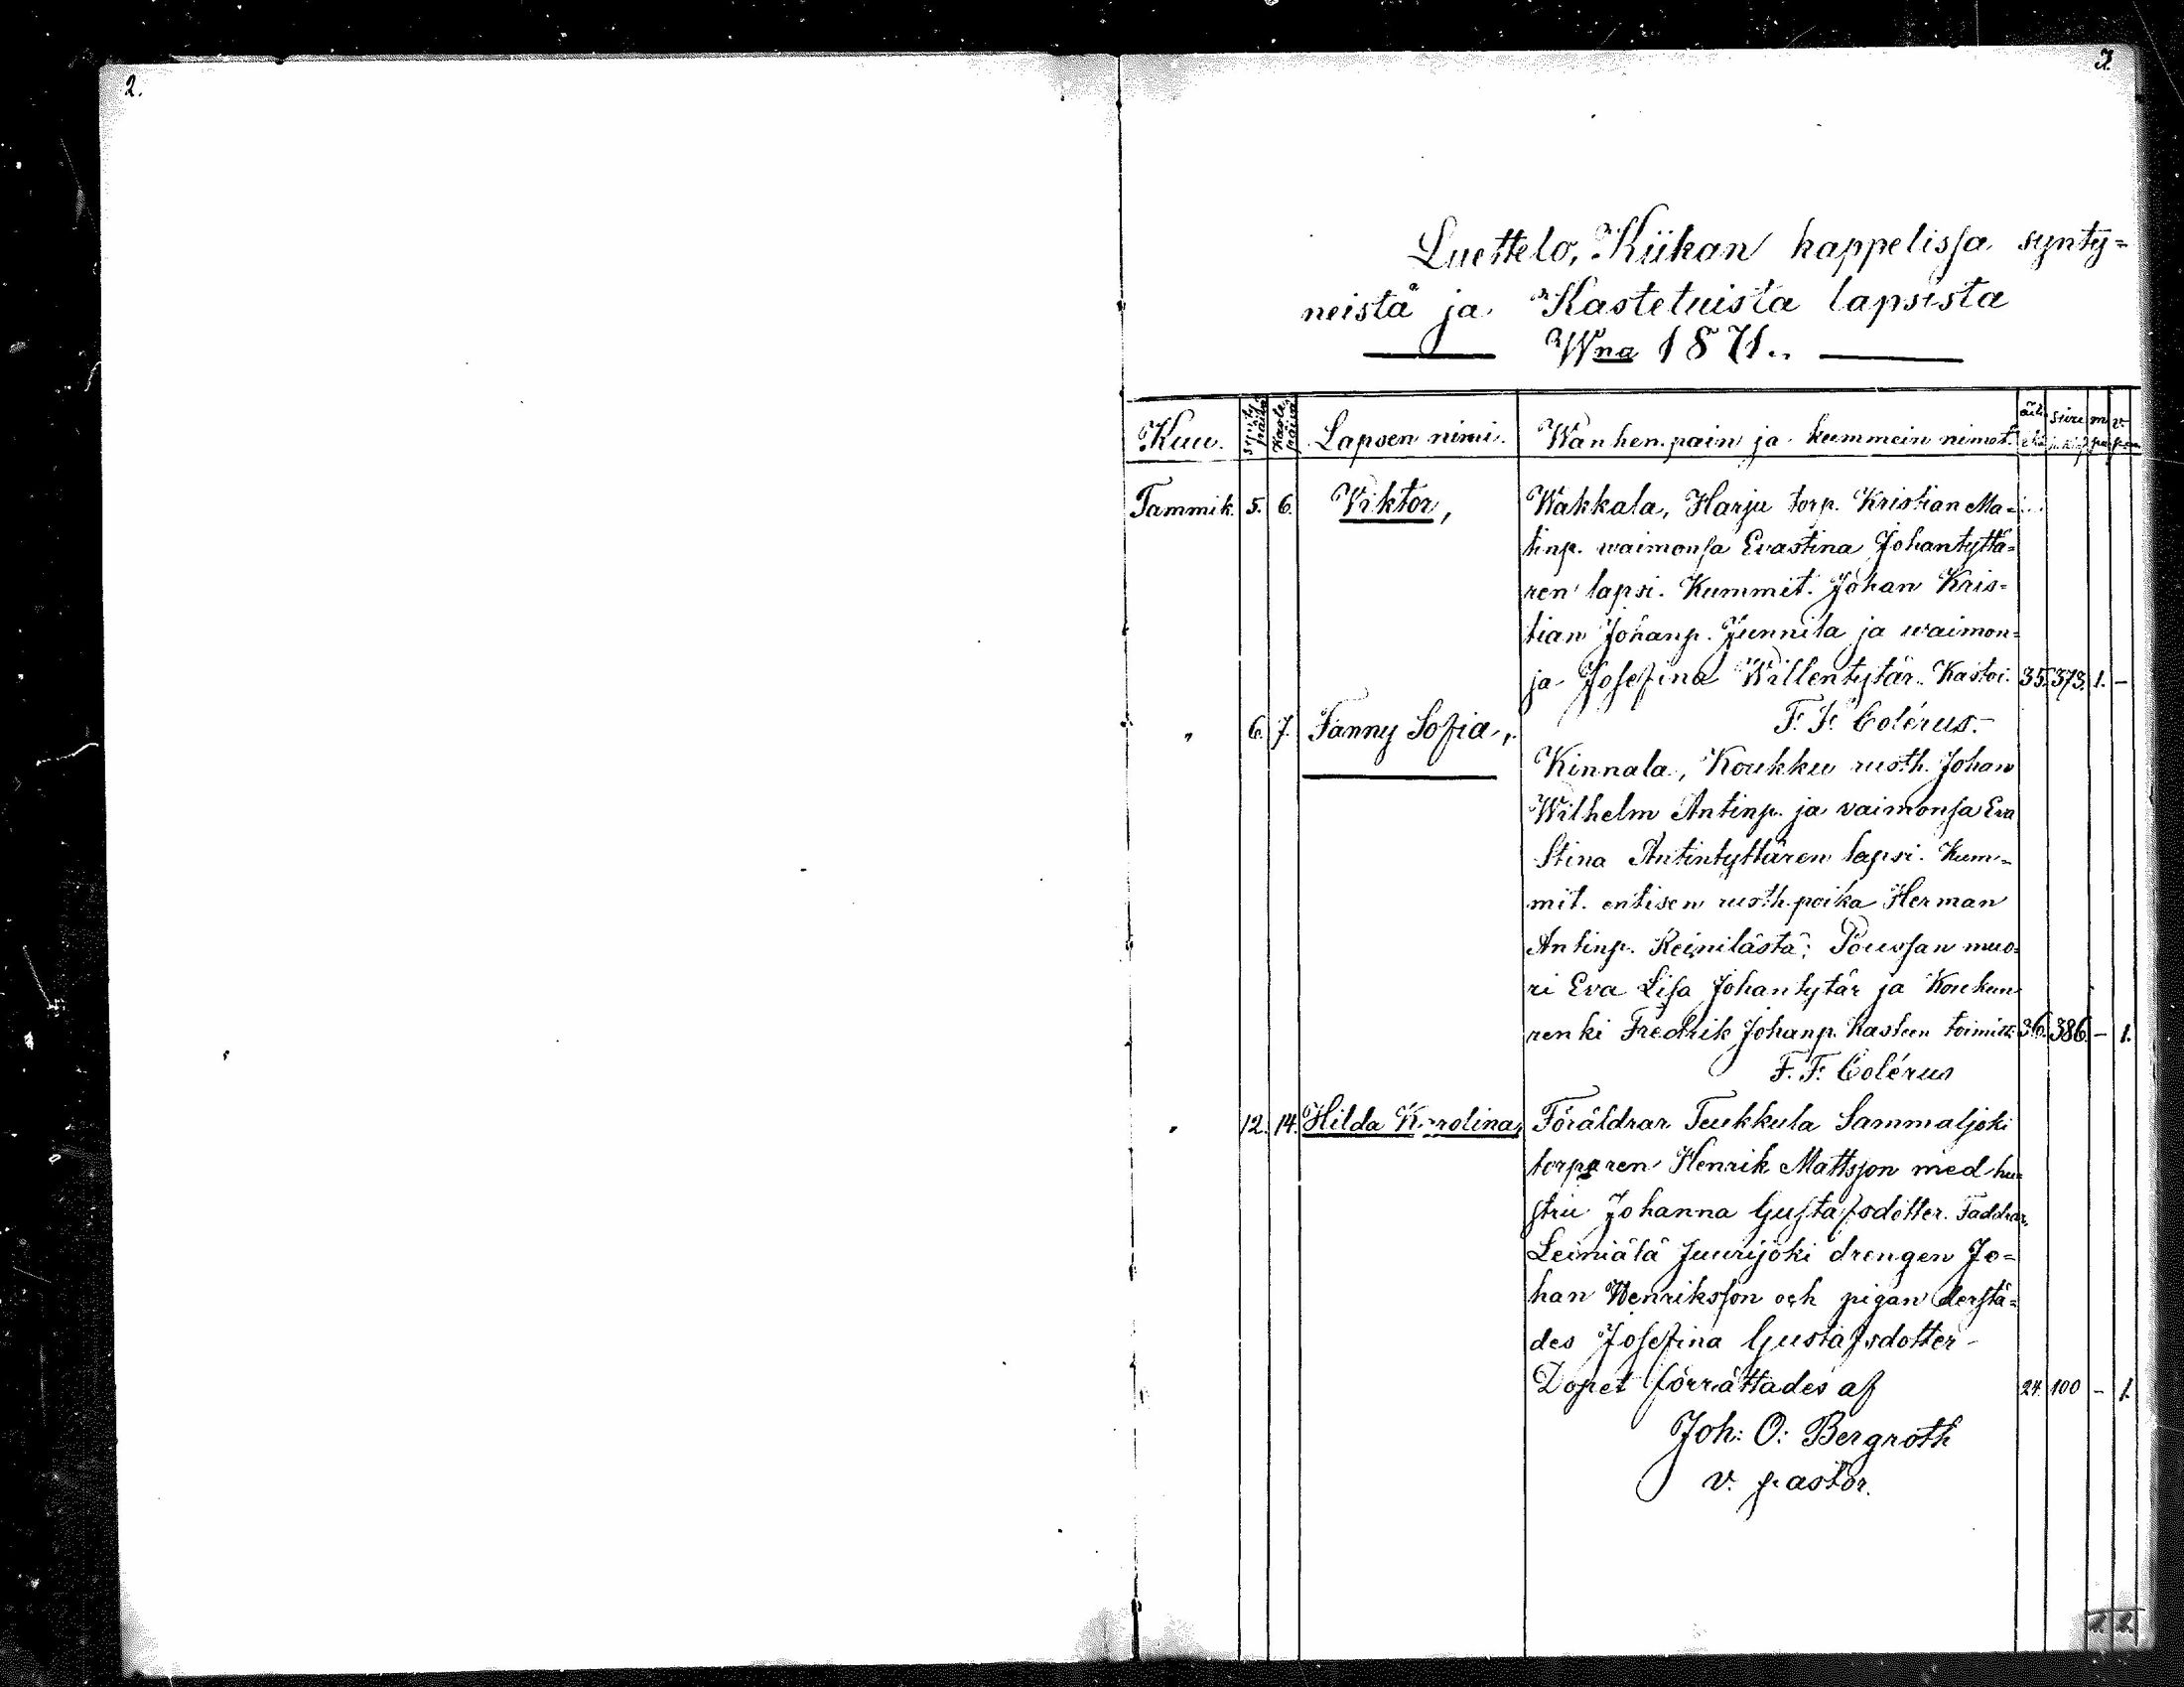 2.
3.
Luettelo, Kiikan kappelissa synty=
neistä ja Kastetuista lapsista
Wna 1871..
Kuu. Synty päivä Kaste päivä Lapsen nimi. Wanhenpain ja kummein nimet. äit. siv. m. v.
Tammik. 5. 6. Viktor, Wakkala, Harju torp. Kristian Ma=
tinp. waimonsa Evastina Johantyttä=
ren lapsi. Kummit. Johan Kris=
tian Johanp. Junnila ja waimon=
sa Josefina Willentytär. Kastoi. 35. 373. 1. –
F. F. Colérus.
" 6. 7. Fanny Sofia,
Kinnala, Koukku rusth. Johan
Wilhelm Antinp. ja vaimonsa Eva
Stina Antintyttären lapsi. Kum=
mit. entisen rusth. poika Herman
Antinp. Reinilästä; Poussan muo=
ri Eva Lisa Johantytär ja Koukun
renki Fredrik Johanp. kasteen toimitt. 36. 386. – 1.
F. F. Colérus
" 12. 14. Hilda Karolina, Föräldrar Teukkula Sammaljoki
torparen Henrik Mattsson med hu=
stru Johanna Gustafsdotter. Faddrar,
Leiniälä Juurijoki drengen Jo=
han Henriksson och pigan derstä=
des Josefina Gustafsdotter
Dopet förrättades af 24. 100 – 1.
Joh: O: Bergroth
v. pastor.
1. 2.